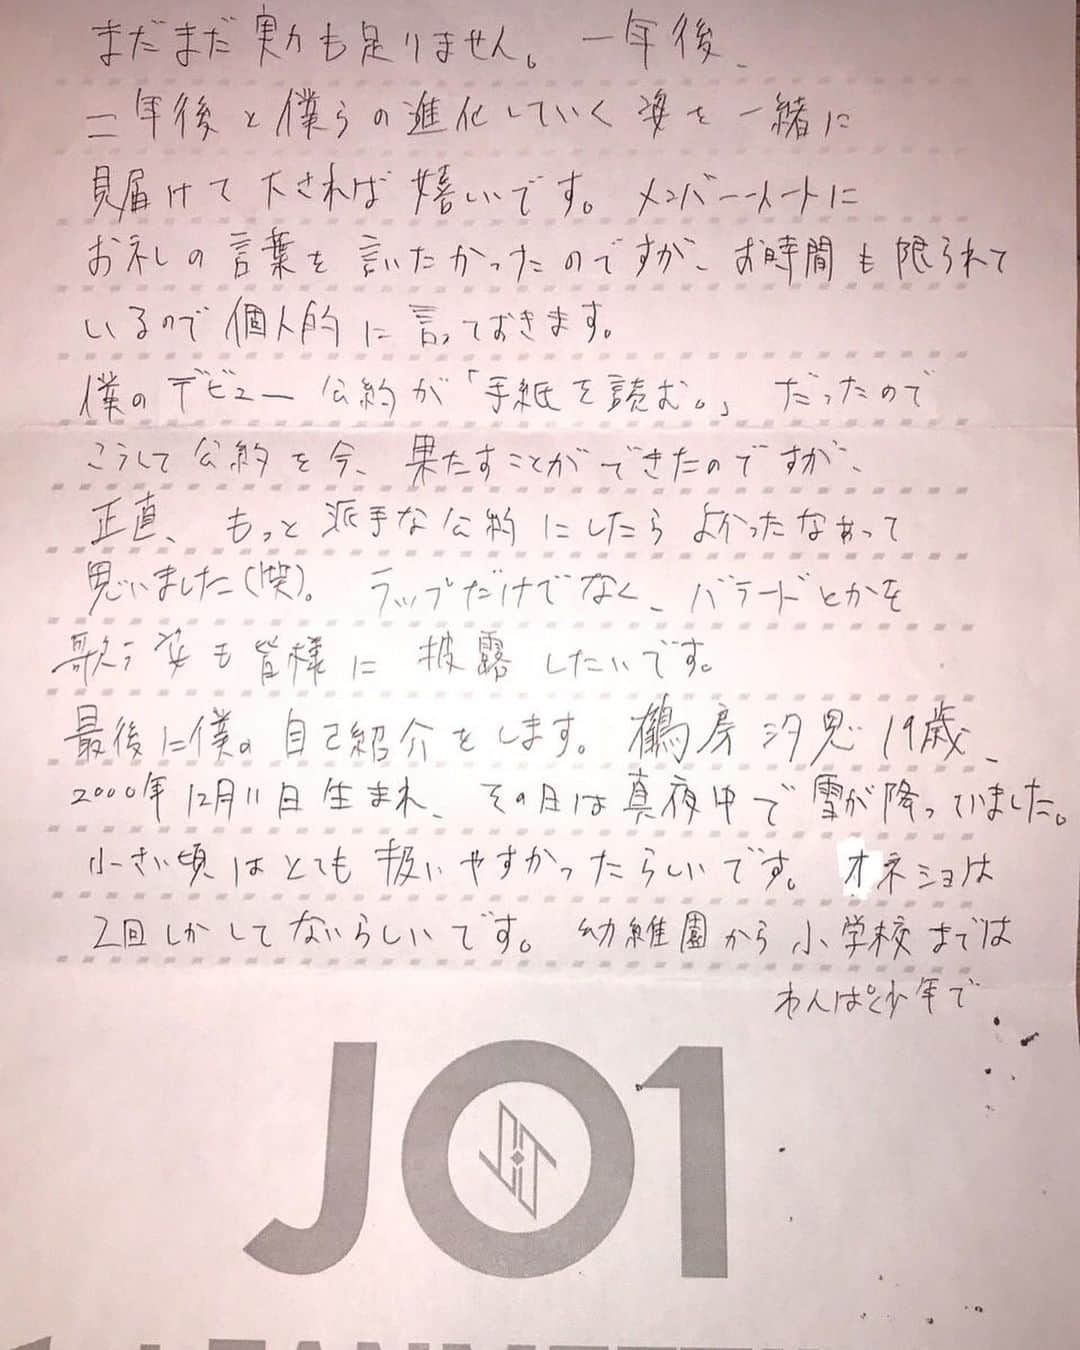 まだまだ実力も足りません。一年後、
二年後と僕らの進化していく姿を一緒に
見届けて下されば嬉しいです。メンバー一人一人に
お礼の言葉を言いたかったのですが、お時間も限られて
いるので個人的に言っておきます。
僕のデビュー公約が「手紙を読む。」だったので
こうして公約を今、果たすことができたのですが、
正直、もっと派手な公約にしたらよかったなぁって
思いました(笑)。ラップだけでなく、バラードとかを
歌う姿も皆様に披露したいです。
最後に僕の自己紹介をします。鶴房汐恩19歳、
2000年12月11日生まれ、その日は真夜中で雪が降っていました。
小さい頃はとても扱いやすかったらしいです。オネショは
2回しかしてないらしいです。幼稚園から小学校までは
わんぱく少年で
JO1